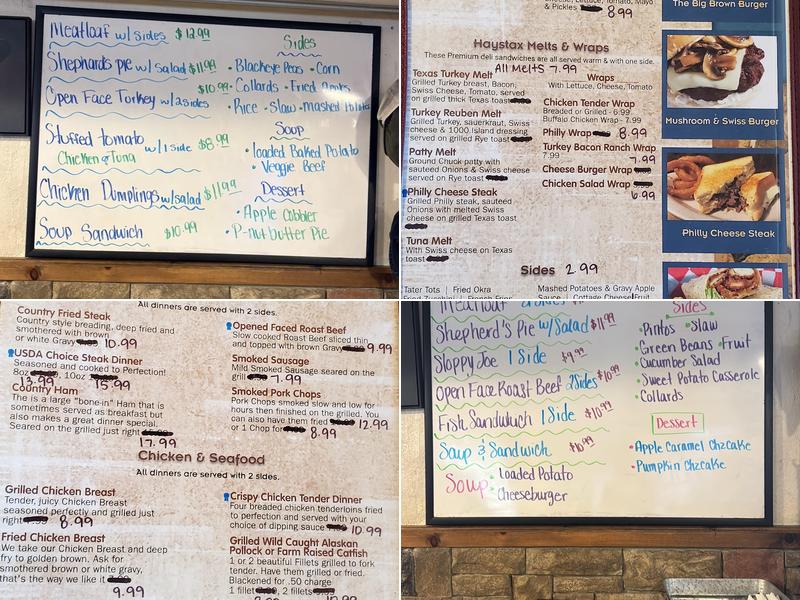 Meatloaf w/ sides $12.99
Shephards pie w/ Salad $11.99
Open Face Turkey w/ 2 sides $10.99
Stuffed tomato w/ 1 side $8.99
Chicken & Tuna
Chicken Dumplings w/ salad $11.99
Soup Sandwich $10.99
Sides
• Blackeye Peas • Corn
• Collards • Fried
• Rice • Slaw • mashed Potato
Soup
• loaded Baked Potato
• Veggie Beef
Dessert
• Apple Cobbler
• P-nut butter Pie
Cheese, Lettuce, Tomato, Mayo
& Pickles 8.99
Haystax Melts & Wraps
These Premium deli sandwiches are all served warm & with one side.
All Melts 7.99
Texas Turkey Melt
Grilled Turkey breast, Bacon,
Swiss Cheese, Tomato, served
on grilled thick Texas toast
Turkey Reuben Melt
Grilled Turkey, sauerkraut, Swiss
cheese & 1000 Island dressing
served on grilled Rye toast
Patty Melt
Ground Chuck patty with
sauteed Onions & Swiss cheese
served on Rye toast
Philly Cheese Steak
Grilled Philly steak, sauteed
Onions with melted Swiss
cheese on grilled Texas
toast
Tuna Melt
With Swiss cheese on Texas
toast
Wraps
With Lettuce, Cheese, Tomato
Chicken Tender Wrap
Breaded or Grilled - 6.99
Buffalo Chicken Wrap - 7.99
Philly Wrap 8.99
Turkey Bacon Ranch Wrap
7.99 7.99
Cheese Burger Wrap
Chicken Salad Wrap
6.99
Sides 2.99
Tater Tots | Fried Okra
Fried Zucchini | French Fries
Mashed Potatoes & Gravy Apple
Sauce | Cottage Cheese | Fruit
The Big Brown Burger
Mushroom & Swiss Burger
Philly Cheese Steak
All dinners are served with 2 sides.
Country Fried Steak
Country style breading, deep fried and
smothered with brown
or white Gravy 10.99
USDA Choice Steak Dinner
Seasoned and cooked to Perfection!
8oz , 10oz
13.99 15.99
Country Ham
The is a large "bone-in" Ham that is
sometimes served as breakfast but
also makes a great dinner special.
Seared on the grilled just right
17.99
Opened Faced Roast Beef
Slow cooked Roast Beef sliced thin
and topped with brown Gravy 9.99
Smoked Sausage
Mild Smoked Sausage seared on the
grill 7.99
Smoked Pork Chops
Pork Chops smoked slow and low for
hours then finished on the grilled. You
can also have them fried 12.99
or 1 Chop for 8.99
Chicken & Seafood
All dinners are served with 2 sides.
Grilled Chicken Breast
Tender, juicy Chicken Breast
seasoned perfectly and grilled just
right 8.99
Fried Chicken Breast
We take our Chicken Breast and deep
fry to golden brown. Ask for
smothered brown or white gravy,
that's the way we like it
9.99
Crispy Chicken Tender Dinner
Four breaded chicken tenderloins fried
to perfection and served with your
choice of dipping sauce 10.99
Grilled Wild Caught Alaskan
Pollock or Farm Raised Catfish
1 or 2 beautiful Fillets grilled to fork
tender. Have them grilled or fried.
Blackened for .50 charge
1 fillet , 2 fillets
Meatloaf
Shepherd's Pie w/ Salad $11.99
Sloppy Joe 1 Side $9.99
Open Face Roast Beef 2 Sides $10.99
Fish Sandwich 1 Side $10.99
Soup & Sandwich $10.99
Soup: Loaded Potato
Cheeseburger
Sides
• Pintos • Slaw
• Green Beans • Fruit
• Cucumber Salad
• Sweet Potato Casserole
• Collards
Dessert
• Apple Caramel Chzcake
• Pumpkin Chzcake